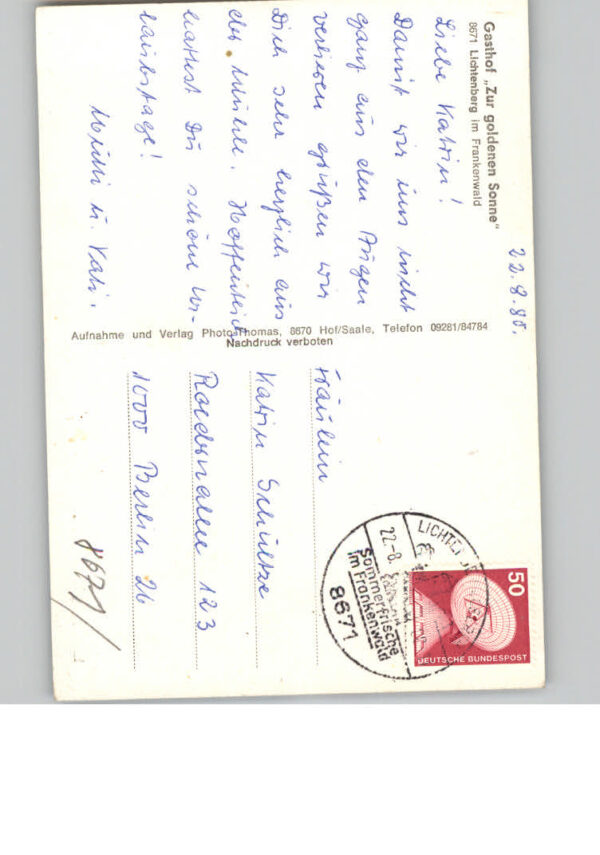 Gasthof „Zur goldenen Sonne"
8671 Lichtenberg im Frankenwald
22.8.80.
Liebe Katrin!
Damit wir uns nicht
ganz aus den Augen
verlieren grüßen wir
Dich sehr herzlich aus
der
Hoffentlich
hattest Du schöne Ur-
laubstage!
Michi u. Kati.
Aufnahme und Verlag Photo-Thomas, 8670 Hof/Saale, Telefon 09281/84784
Nachdruck verboten
Fräulein
Katrin Schultze
123
1000 Berlin 26
8671/
22.-8.
Sommerfrische
im Frankenwald
8671
50
DEUTSCHE BUNDESPOST